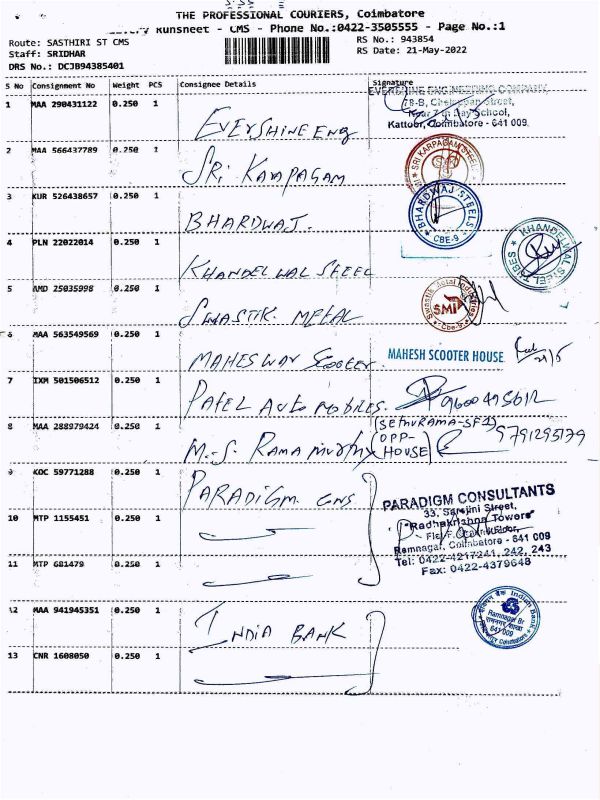 THE PROFESSIONAL COURIERS, Coimbatore
Runsheet - CMS - Phone No.:0422-3505555 - Page No.:1
Route: SASTHIRI ST CMS
RS No.: 943854
Staff: SRIDHAR
RS Date: 21-May-2022
DRS No.: DCJB94385401
S No Consignment No Weight PCS Consignee Details Signature
1 MAA 290431122 0.250 1 EVERSHINE ENG
EVERSHINE ENGINEERING COMPANY
78-B, Street,
School,
Kattoor, Coimbatore - 641 009.
2 MAA 566437789 0.250 1 SRI KARPAGAM
SRI KARPAGAM STEELS
3 KUR 526438657 0.250 1 BHARDWAJ.
BHARDWAJ STEELS
CBE-9
4 PLN 22022014 0.250 1 KHANDELWAL STEEL
KHANDELWAL STEEL TUBES
5 AMD 25035998 0.250 1 SWASTIK METAL
SMI
Cbe-9
6 MAA 563549569 0.250 1 MAHESWAR SCOOTER
MAHESH SCOOTER HOUSE
21/5
7 IXM 501506512 0.250 1 PATEL AUTOMOBILES. 9600495612
8 MAA 288979424 0.250 1 M.S. RAMAMURTHY
(OPP- HOUSE)
9791295179
9 KOC 59771288 0.250 1 PARADIGM CONS
PARADIGM CONSULTANTS
33, Sarojini Street,
"Radhakrishna Towers"
Ramnagar, Coimbatore - 641 009
Tel: 0422-4217241, 242, 243
Fax: 0422-4379648
10 MTP 1155451 0.250 1
11 MTP 681479 0.250 1
12 MAA 941945351 0.250 1 INDIA BANK
Indian Bank
Ramnagar Br
641 009
Coimbatore
13 CNR 1608050 0.250 1